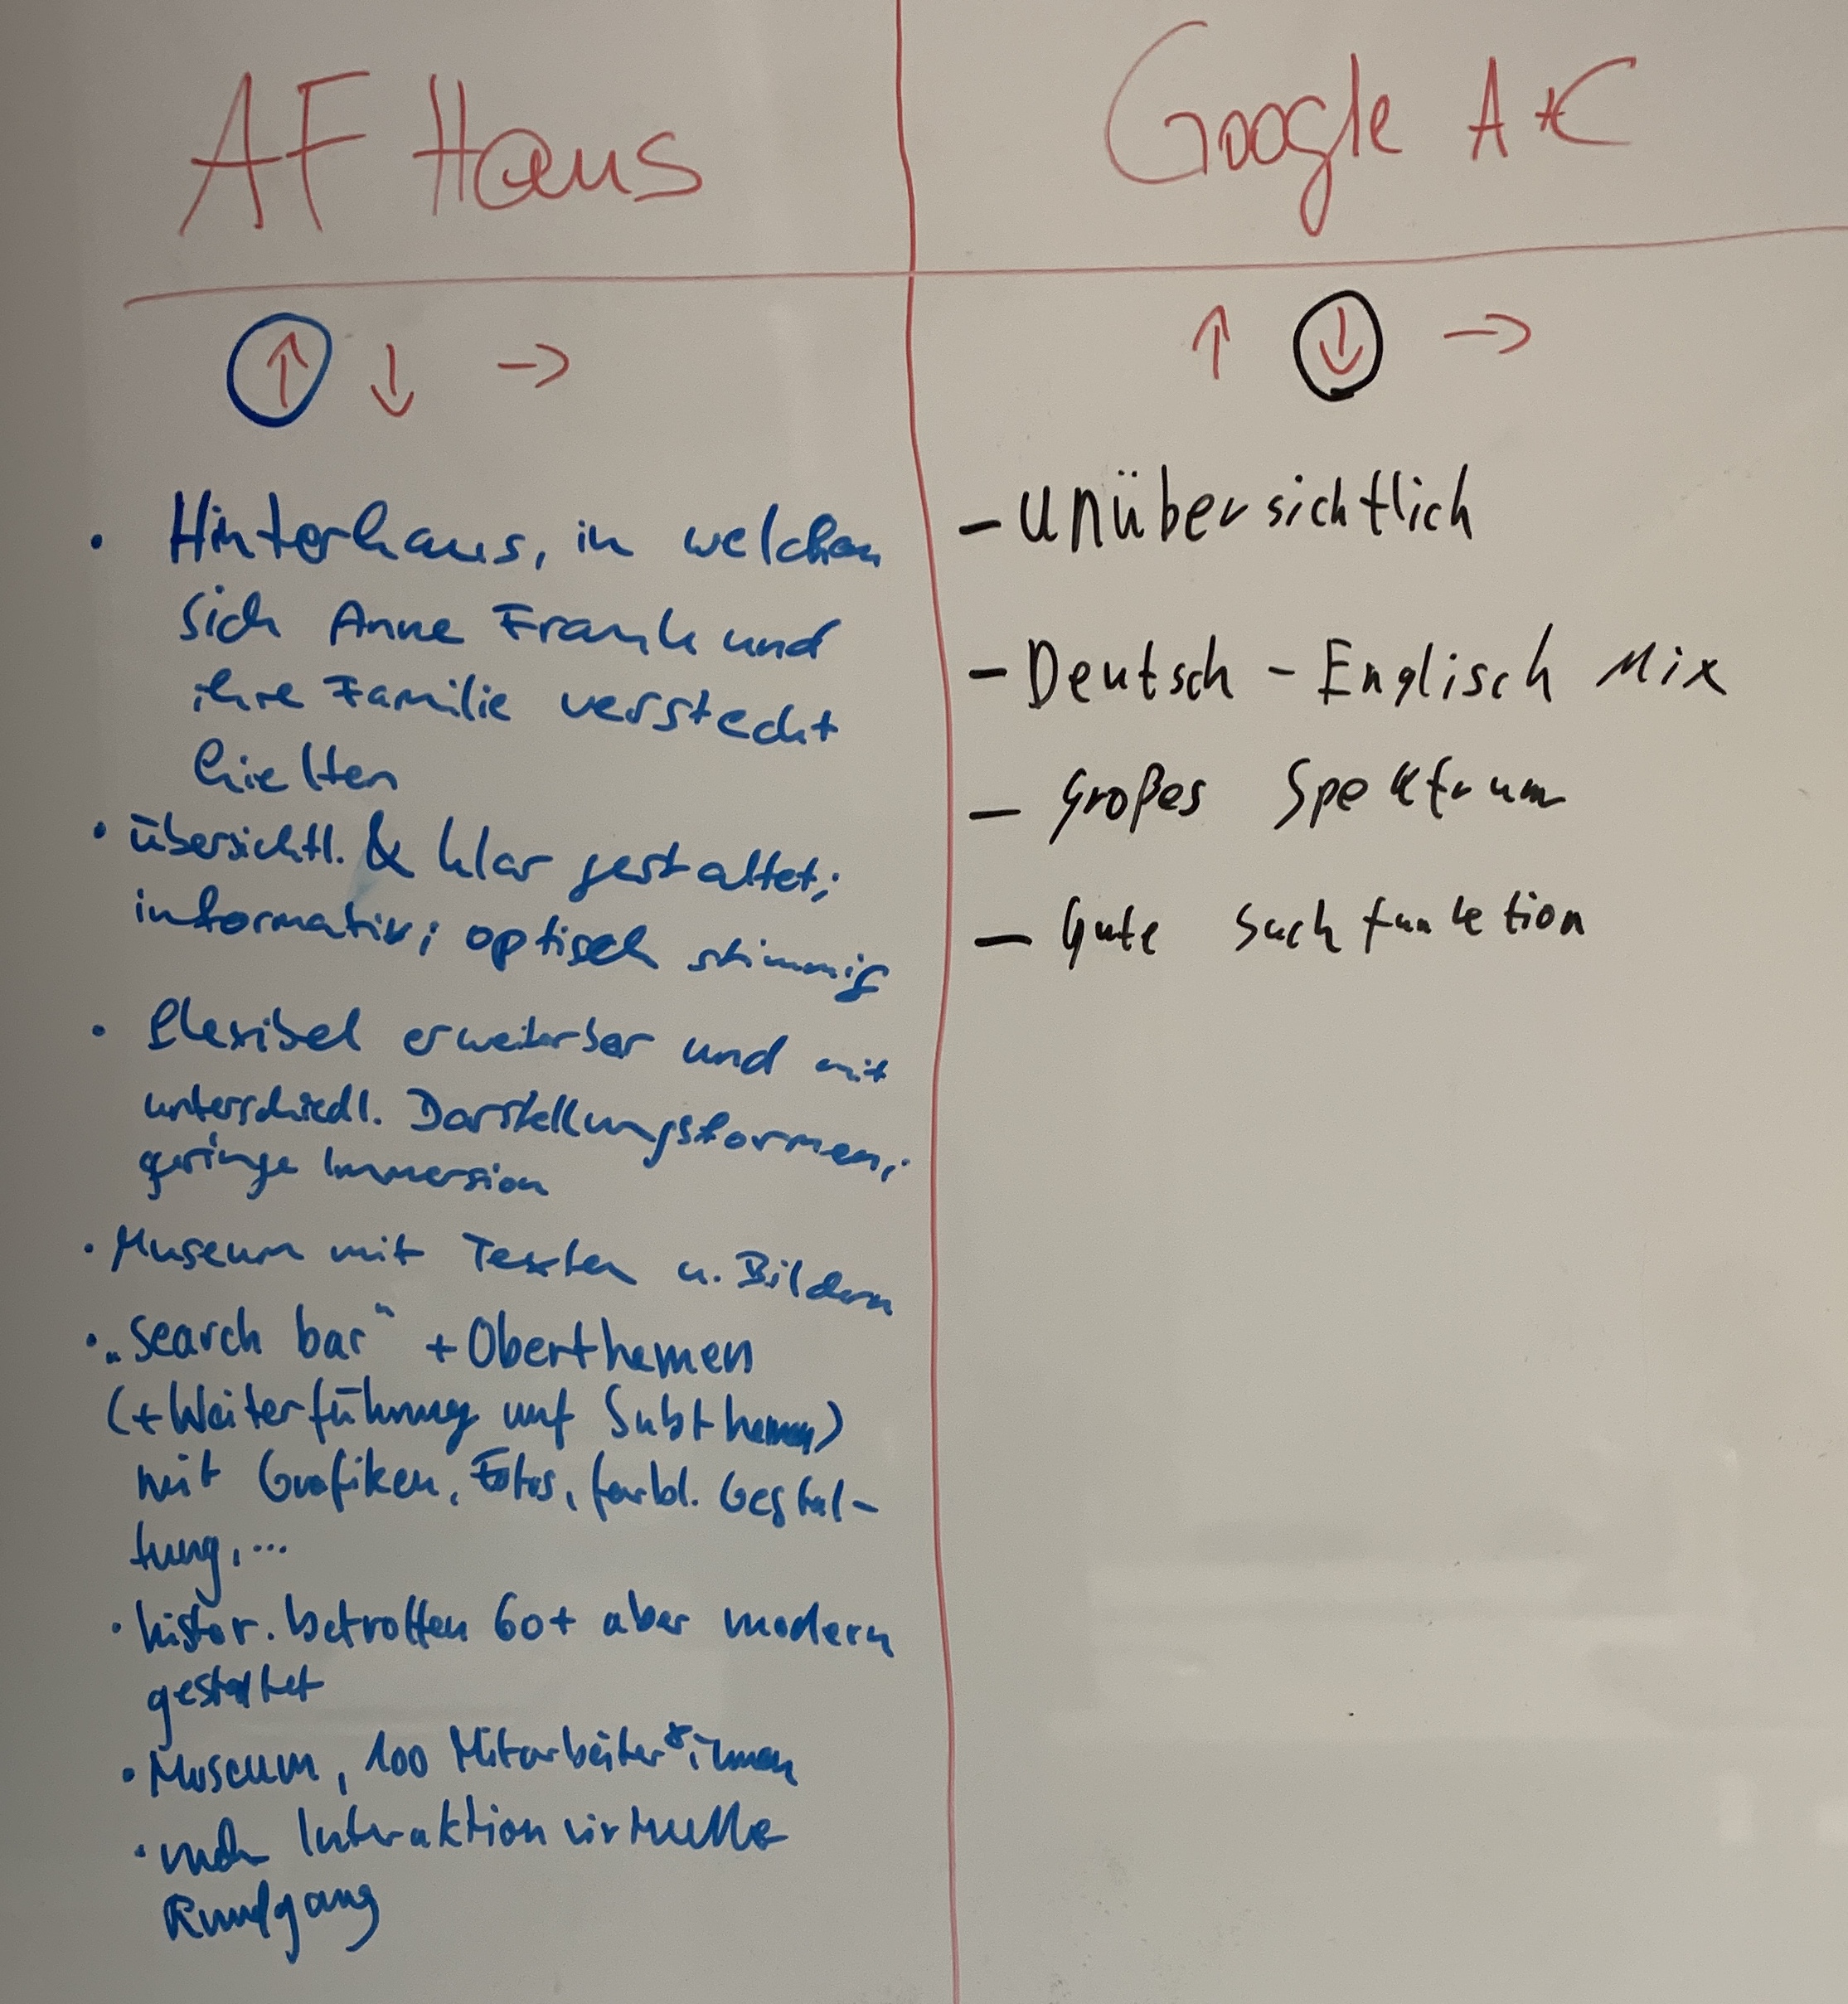 AF Haus
↑ ↓ →
• Hinterhaus, in welchem
sich Anne Frank und
ihre Familie versteckt
hielten
• übersichtl. & klar gestaltet;
informativ; optisch stimmig
• flexibel erweiterbar und mit
unterschiedl. Darstellungsformen;
geringe Immersion
• Museum mit Texten u. Bildern
• „search bar" + Oberthemen
(+ Weiterführung auf Subthemen)
mit Grafiken, Fotos, farbl. Gestal-
tung, ...
• histor. betroffen 60+ aber modern
gestaltet
• Museum, 100 Mitarbeiter*innen
• Interaktion virtuelle
Rundgang
Google A+C
↑ ↓ →
– unübersichtlich
– Deutsch - Englisch Mix
– Großes Spektrum
– Gute Suchfunktion